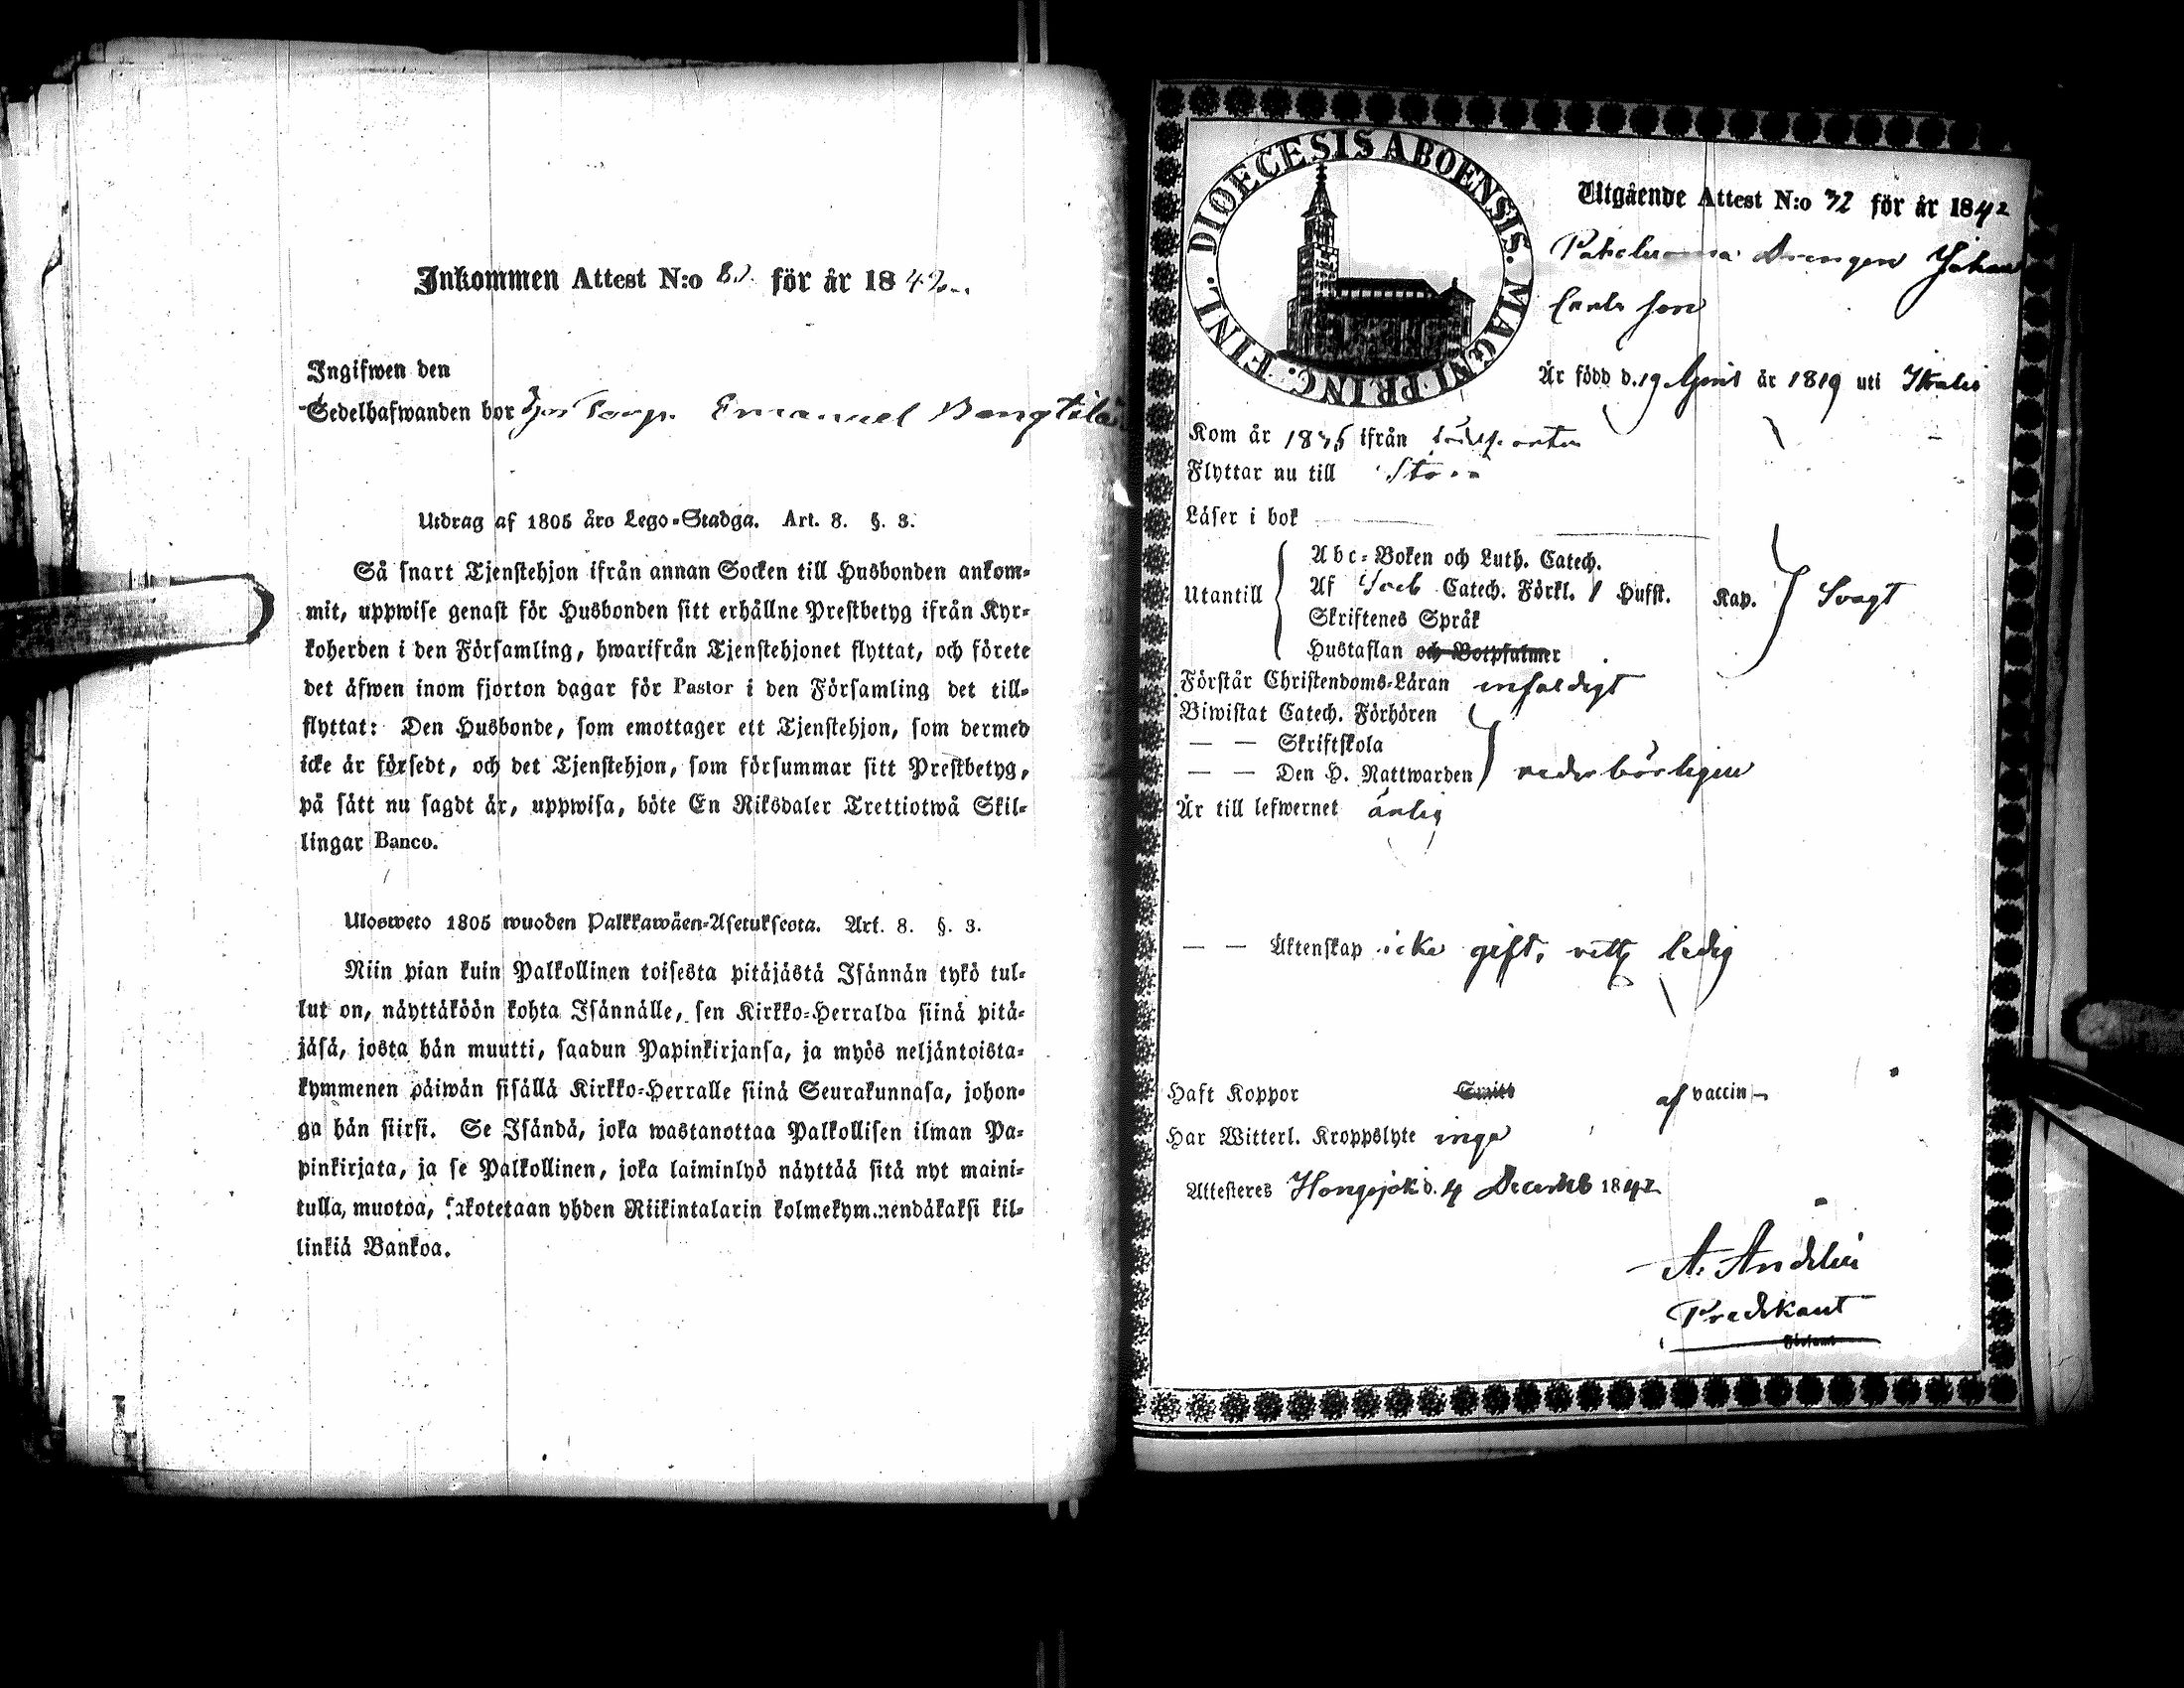 Inkommen Attest N:o för år 1842
Ingifwen den
Sedelhafwanden bor hos Torp. Emanuel
Utdrag af 1805 års Lego-Stadga. Art. 8. §. 3.
Så snart Tjenstehjon ifrån annan Socken till Husbonden ankom-
mit, uppwise genast för Husbonden sitt erhållne Prestbetyg ifrån Kyr-
koherden i den Församling, hwarifrån Tjenstehjonet flyttat, och förete
det äfwen inom fjorton dagar för Pastor i den Församling det till-
flyttat: Den Husbonde, som emottager ett Tjenstehjon, som dermed
icke är försedt, och det Tjenstehjon, som försummar sitt Prestbetyg,
på sätt nu sagdt är, uppwisa, böte En Riksdaler Trettiotwå Skil-
lingar Banco.
Ulosweto 1805 wuoden Palkkawäen-Asetuksesta. Art. 8. §. 3.
Niin pian kuin Palkollinen toisesta pitäjästä Isännän tykö tul-
lut on, näyttäköön kohta Isännälle, sen Kirkko-Herralda siinä pitä-
jäsä, josta hän muutti, saadun Papinkirjansa, ja myös neljäntoista-
kymmenen päiwän sisällä Kirkko-Herralle siinä Seurakunnasa, johon-
ga hän siirsi. Se Isändä, joka wastanottaa Palkollisen ilman Pa-
pinkirjata, ja se Palkollinen, joka laiminlyö näyttää sitä nyt maini-
tulla muotoa, sakotetaan yhden Riikintalarin kolmekymmendäkaksi kil-
linkiä Bankoa.
DIOECESIS ABOENSIS. MAGNI PRINC. FINL.
Utgående Attest N:o 32 för år 1842
Drengen Johan
Carls son
Är född d. 19 April år 1819 uti Ikalis
Kom år ifrån
Flyttar nu till
Läser i bok
Utantill
Abc-Boken och Luth. Catech.
Af Sveb Catech. Förkl. 1 Hufst. Kap.
Skriftenes Språk
Hustaflan och Botpsalmer
Svagt
Förstår Christendoms-Läran enfaldigt
Biwistat Catech. Förhören
— — Skriftskola
— — Den H. Nattwarden
vederbörligen
Är till lefwernet ärlig
— — Äktenskap icke gift, ledig
Haft Koppor Smitt af vaccin
Har Witterl. Kroppslyte inga
Attesteres Hongojoki d. 4 Decemb 1842
A. Andelin
Predikant